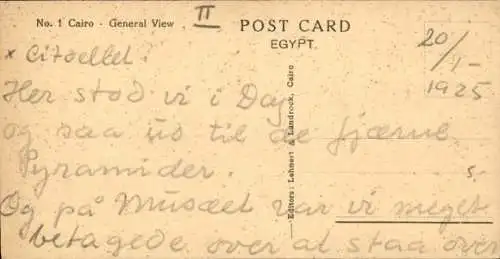 No. 1 Cairo - General View
II
POST CARD
EGYPT.
20/1-
1925
x Citaellet.
Her stod vi i Dag
og saa ud til de fjærne
Pyramider.
Og på Musæet var vi meget
betagede over at staa over
Editors: Lehnert & Landrock, Cairo
5.-